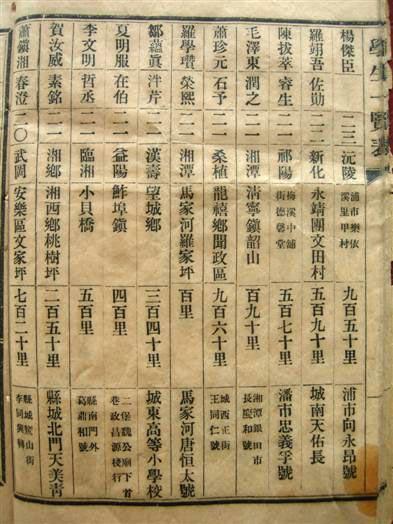 學生一覽表
楊傑臣 二三 沅陵 浦市樂依溪里甲村 九百五十里 浦市向永昂號
羅翊吾 佐勛 二二 新化 永靖團文田村 五百九十里 城南天佑長
陳拔萃 睿生 二二 祁陽 梅溪中浦街德馨堂 五百七十里 潘市忠義孚號
毛澤東 潤之 二二 湘潭 清寧鎮韶山 百九十里 湘潭銀田市長慶和號
蕭珍元 石予 二二 桑植 龍禧鄉聞政區 九百六十里 城西正街王同仁號
羅學瓚 榮熙 二一 湘潭 馬家河羅家坪 百里 馬家河唐恒太號
鄒蘊眞 泮芹 二二 漢壽 望城鄉 三百四十里 城東高等小學校
夏明服 在伯 二一 益陽 鮓埠鎮 四百里 二堡魏公廟下首巷政昌源棧行
李文明 哲丞 二一 臨湘 小貝橋 五百里 縣南門外葛鼎和號
賀汝威 素銘 二一 湘鄉 湘西鄉桃樹坪 二百五十里 縣城北門天美靑
蕭鎮湘 春澄 二〇 武岡 安樂區文家坪 七百二十里 縣城山街李同興